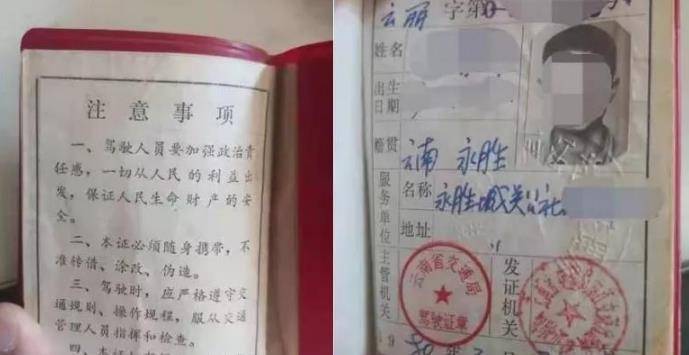 注意事项
一、驾驶人员要加强政治责
任感，一切从人民的利益出
发，保证人民生命财产的安
全。
二、本证必须随身携带，不
准转借、涂改、伪造。
三、驾驶时，应严格遵守交
通规则、操作规程，服从交通
管理人员指挥和检查。
云丽 字第
姓名
出生
日期
籍贯
云南 永胜
服务单位
名称
永胜城关公社
地址
主管机关
云南省交通局
驾驶证章
发证机关